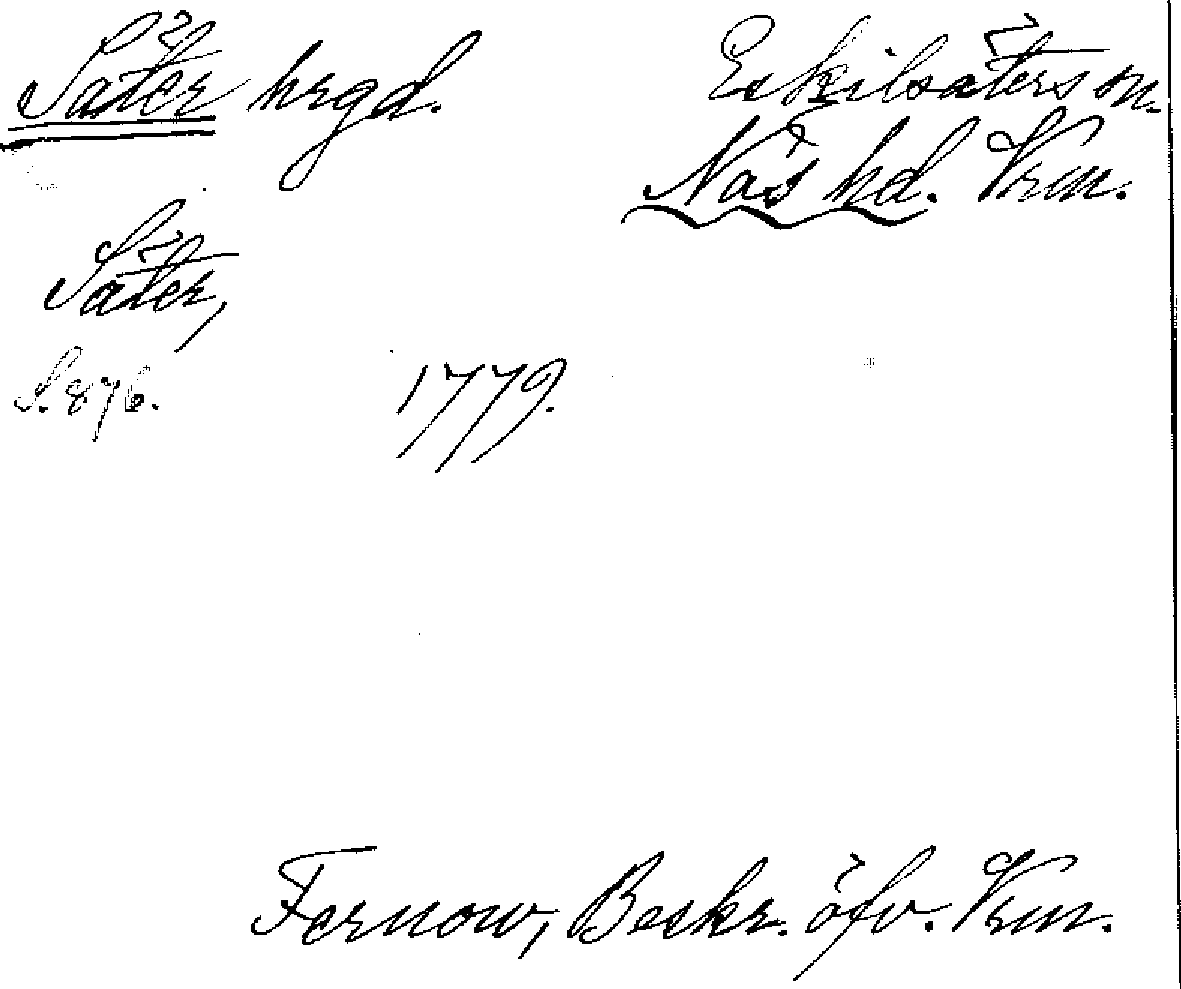 Säter hrgd.
Eskilsäters sn.
Näs hd. Vrm.
Säter,
S. 876.
1779.
Fernow, Beskr. öfv. Vrm.